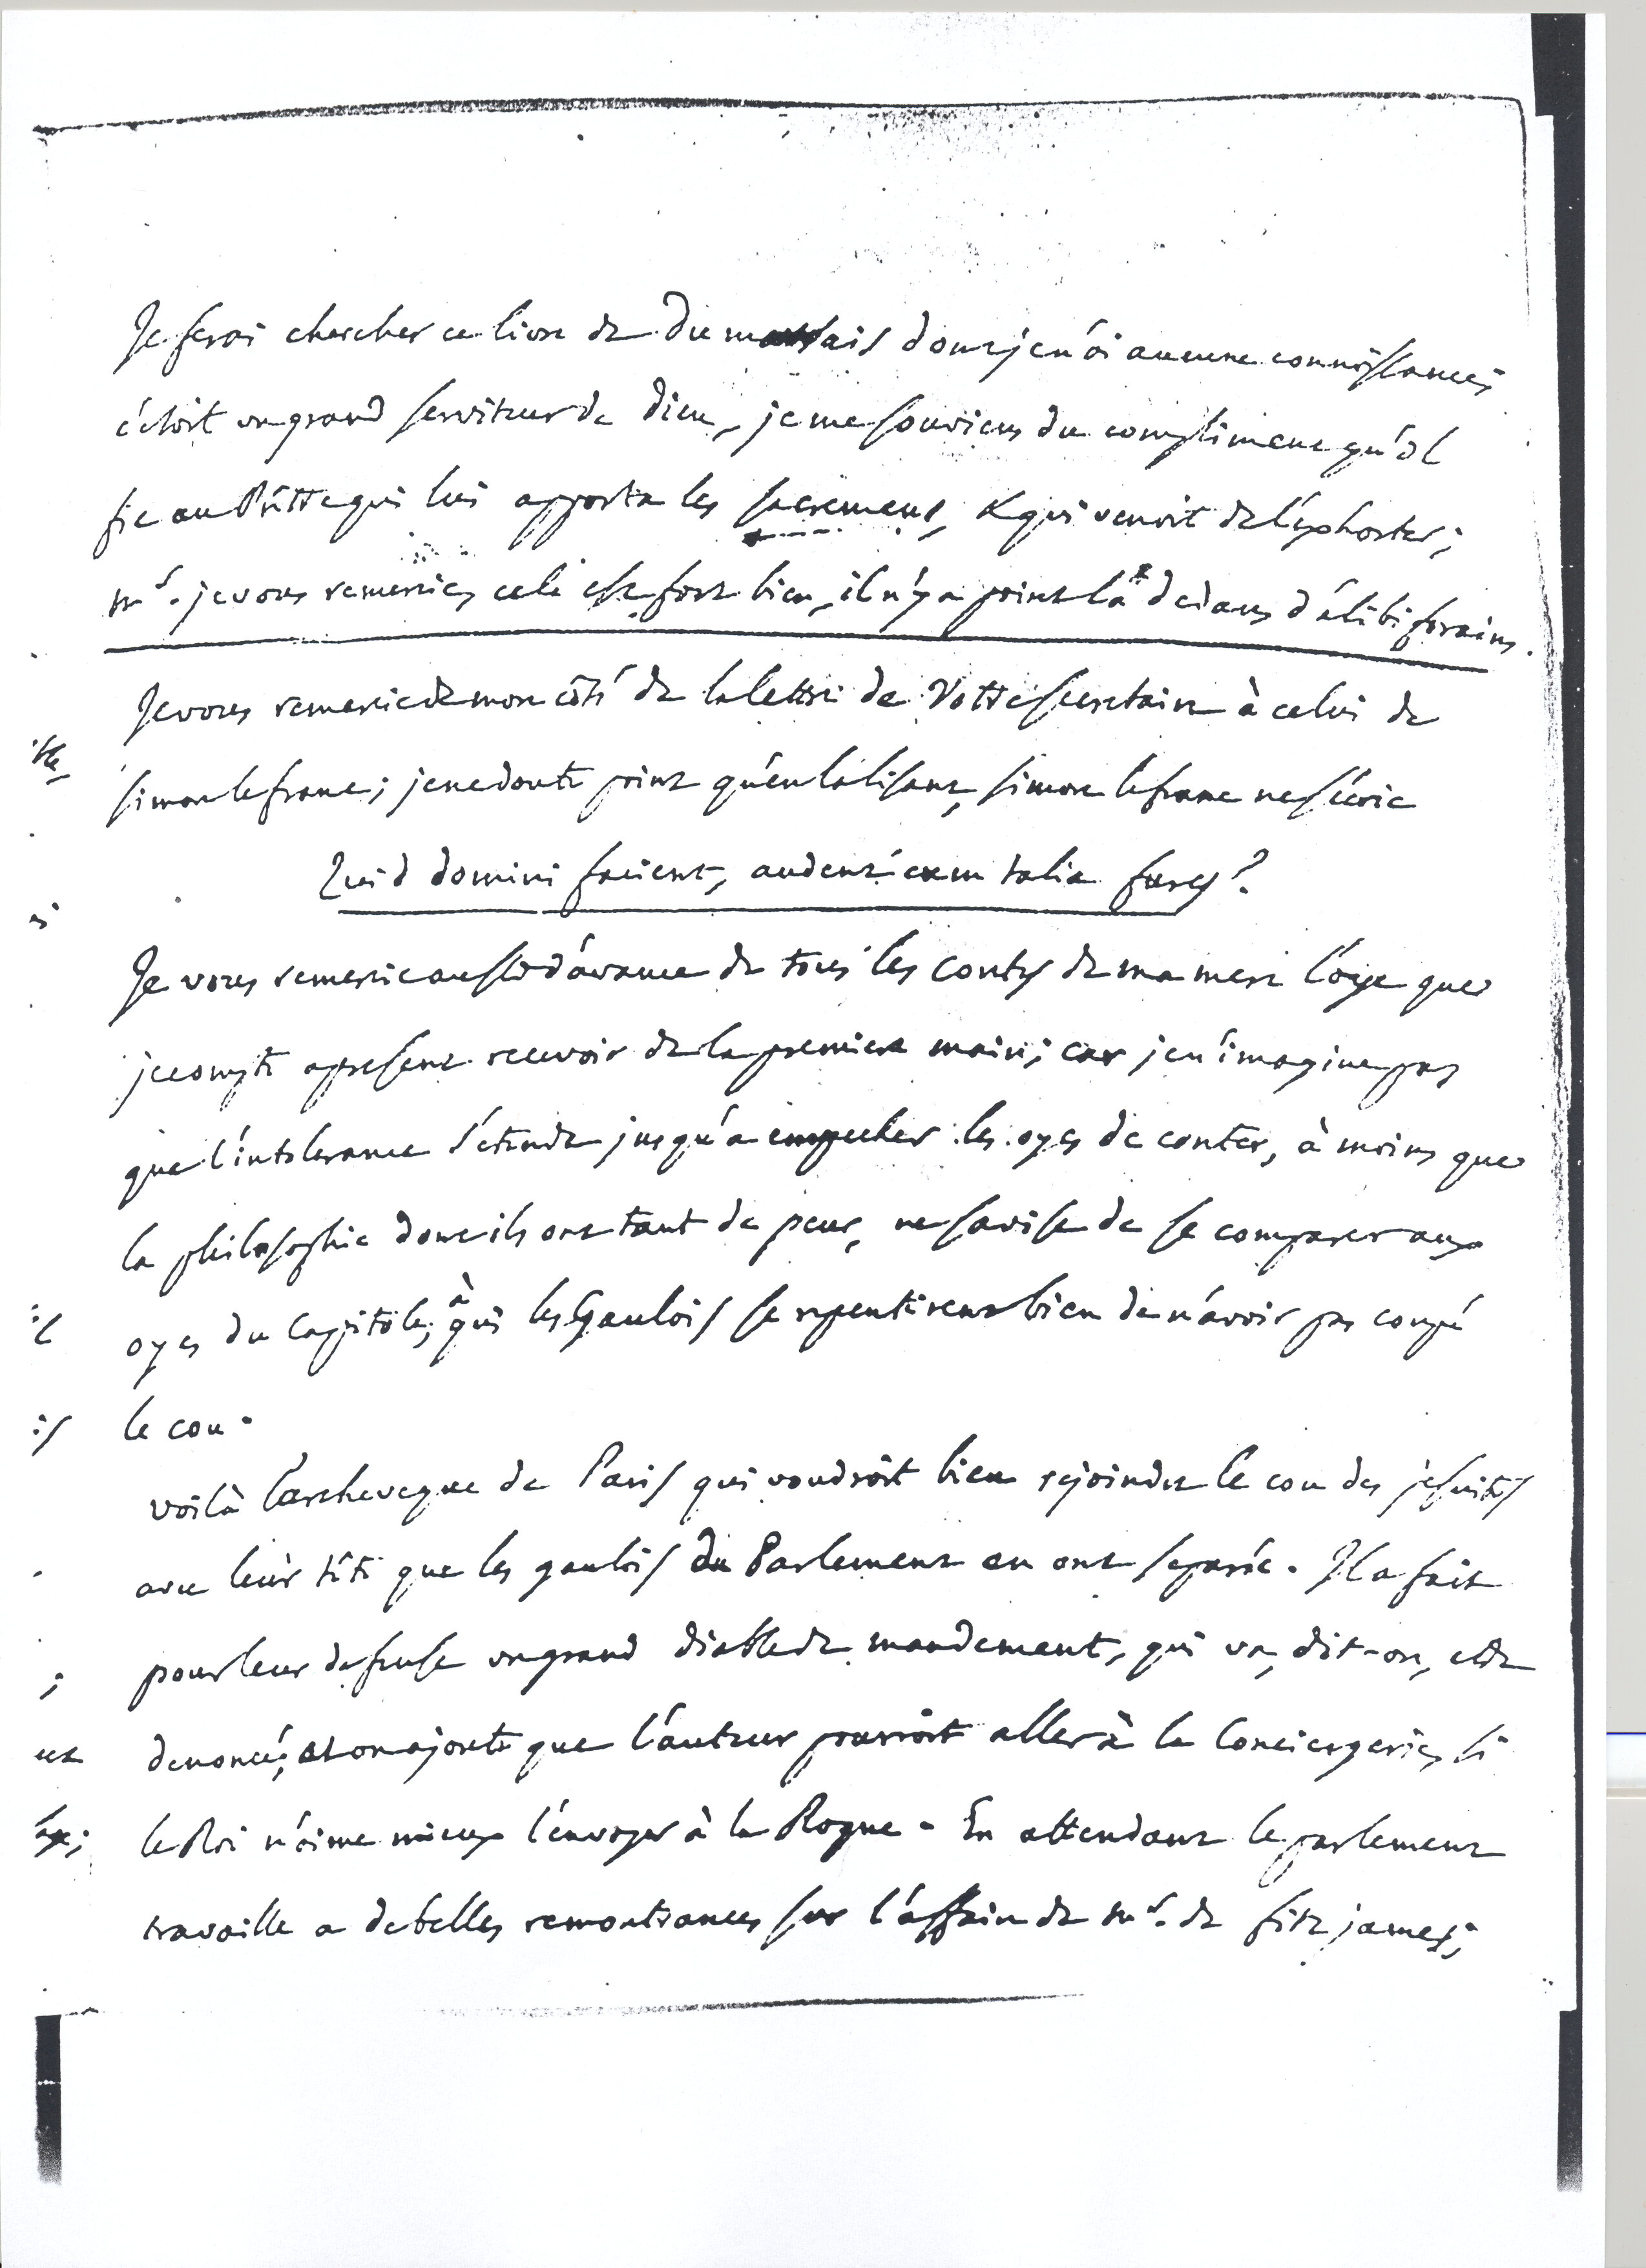 Je ferai chercher ce livre de du marsais dont je n'ai aucune connoissance;
c'etoit un grand serviteur de dieu, je me souviens du compliment qu'il
fit au Prêttre qui lui apporta les sacremens, & qui venoit de l'exhorter;
mr. je vous remercie, cela est fort bien, il n'y a point là dedans d'alibi forains.
Je vous remercie de mon côté de la lettre de Votre secretaire à celui de
simon le franc; je ne doute point qu'en la lisant, simon le franc ne s'écrie
Quid domini facient, audent cum talia fures?
Je vous remercie aussi d'avance de tous les contes de ma mere l'oye que
je compte apresent recevoir de la premiere main; car je n'imagine pas
que l'intolerance s'etende jusqu'a empecher les oyes de conter, à moins que
la philosophie dont ils ont tant de peur, ne s'avise de se comparer aux
oyes du Capitole, à qui les Gaulois se repentirent bien de n'avoir pas coupé
le cou.
voilà l'archeveque de Paris qui voudroit bien rejoindre le cou des jesuites
avec leur tête que les gaulois du Parlement en ont separée. Il a fait
pour leur defense un grand diable de mandement, qui va, dit-on, etre
denoncé; et on ajoute que l'auteur pourroit aller à la Conciergerie, si
le Roi n'aime mieux l'envoyer à la Roque. En attendant le parlement
travaille a de belles remontrances sur l'affaire de mr. de fitz james;